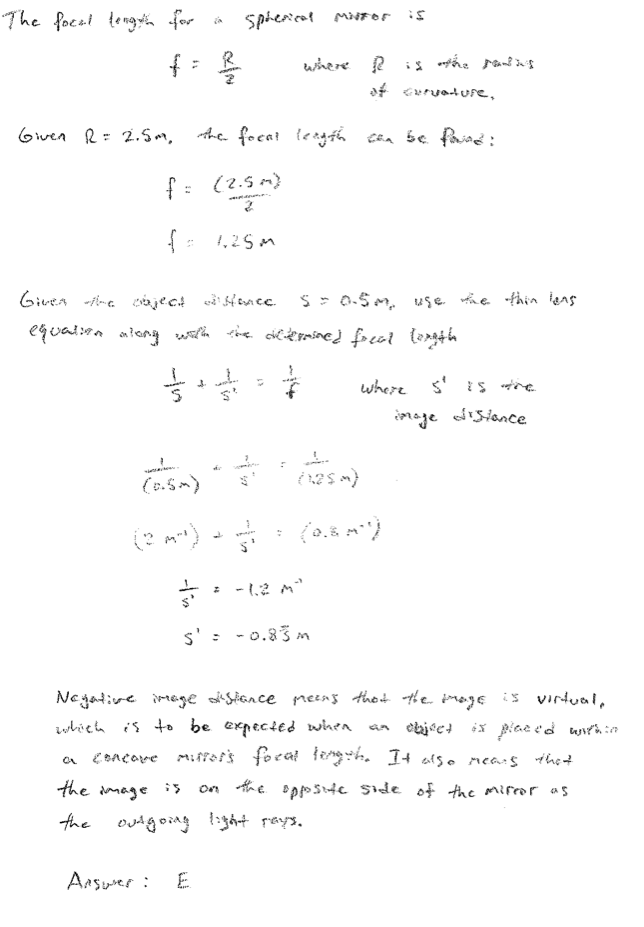 The focal length for a spherical mirror is
f = R/2 where R is the radius
of curvature.
Given R = 2.5m, the focal length can be found:
f = (2.5 m)/2
f = 1.25 m
Given the object distance S = 0.5m, use the thin lens
equation along with the determined focal length
1/S + 1/S' = 1/f where S' is the
image distance
1/(0.5m) + 1/S' = 1/(1.25m)
(2 m⁻¹) + 1/S' = (0.8 m⁻¹)
1/S' = -1.2 m⁻¹
S' = -0.83̅ m
Negative image distance means that the image is virtual,
which is to be expected when an object is placed within
a concave mirror's focal length. It also means that
the image is on the opposite side of the mirror as
the outgoing light rays.
Answer : E